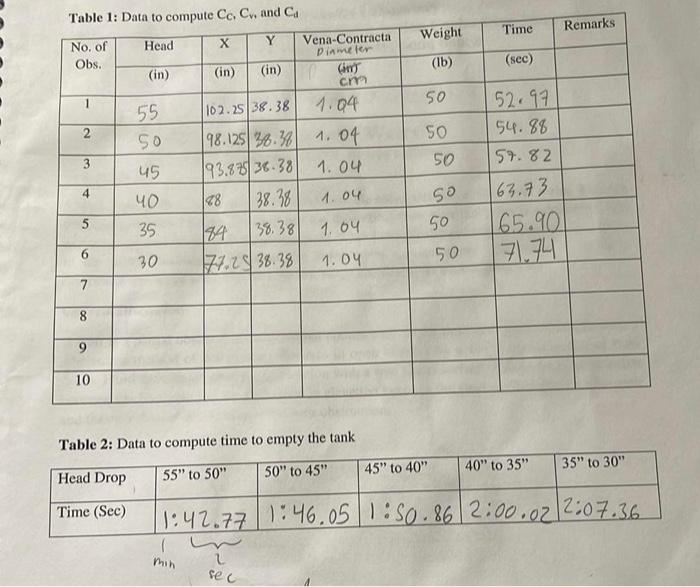 Table 1: Data to compute Cc, Cv, and Cd
No. of Obs. Head (in) X (in) Y (in) Vena-Contracta Diameter (in) cm Weight (lb) Time (sec) Remarks
1 55 102.25 38.38 1.04 50 52.97
2 50 98.125 38.38 1.04 50 54.88
3 45 93.875 38.38 1.04 50 57.82
4 40 88 38.38 1.04 50 63.73
5 35 84 38.38 1.04 50 65.90
6 30 77.25 38.38 1.04 50 71.74
7
8
9
10
Table 2: Data to compute time to empty the tank
Head Drop 55" to 50" 50" to 45" 45" to 40" 40" to 35" 35" to 30"
Time (Sec) 1:42.77 1:46.05 1:50.86 2:00.02 2:07.36
min sec